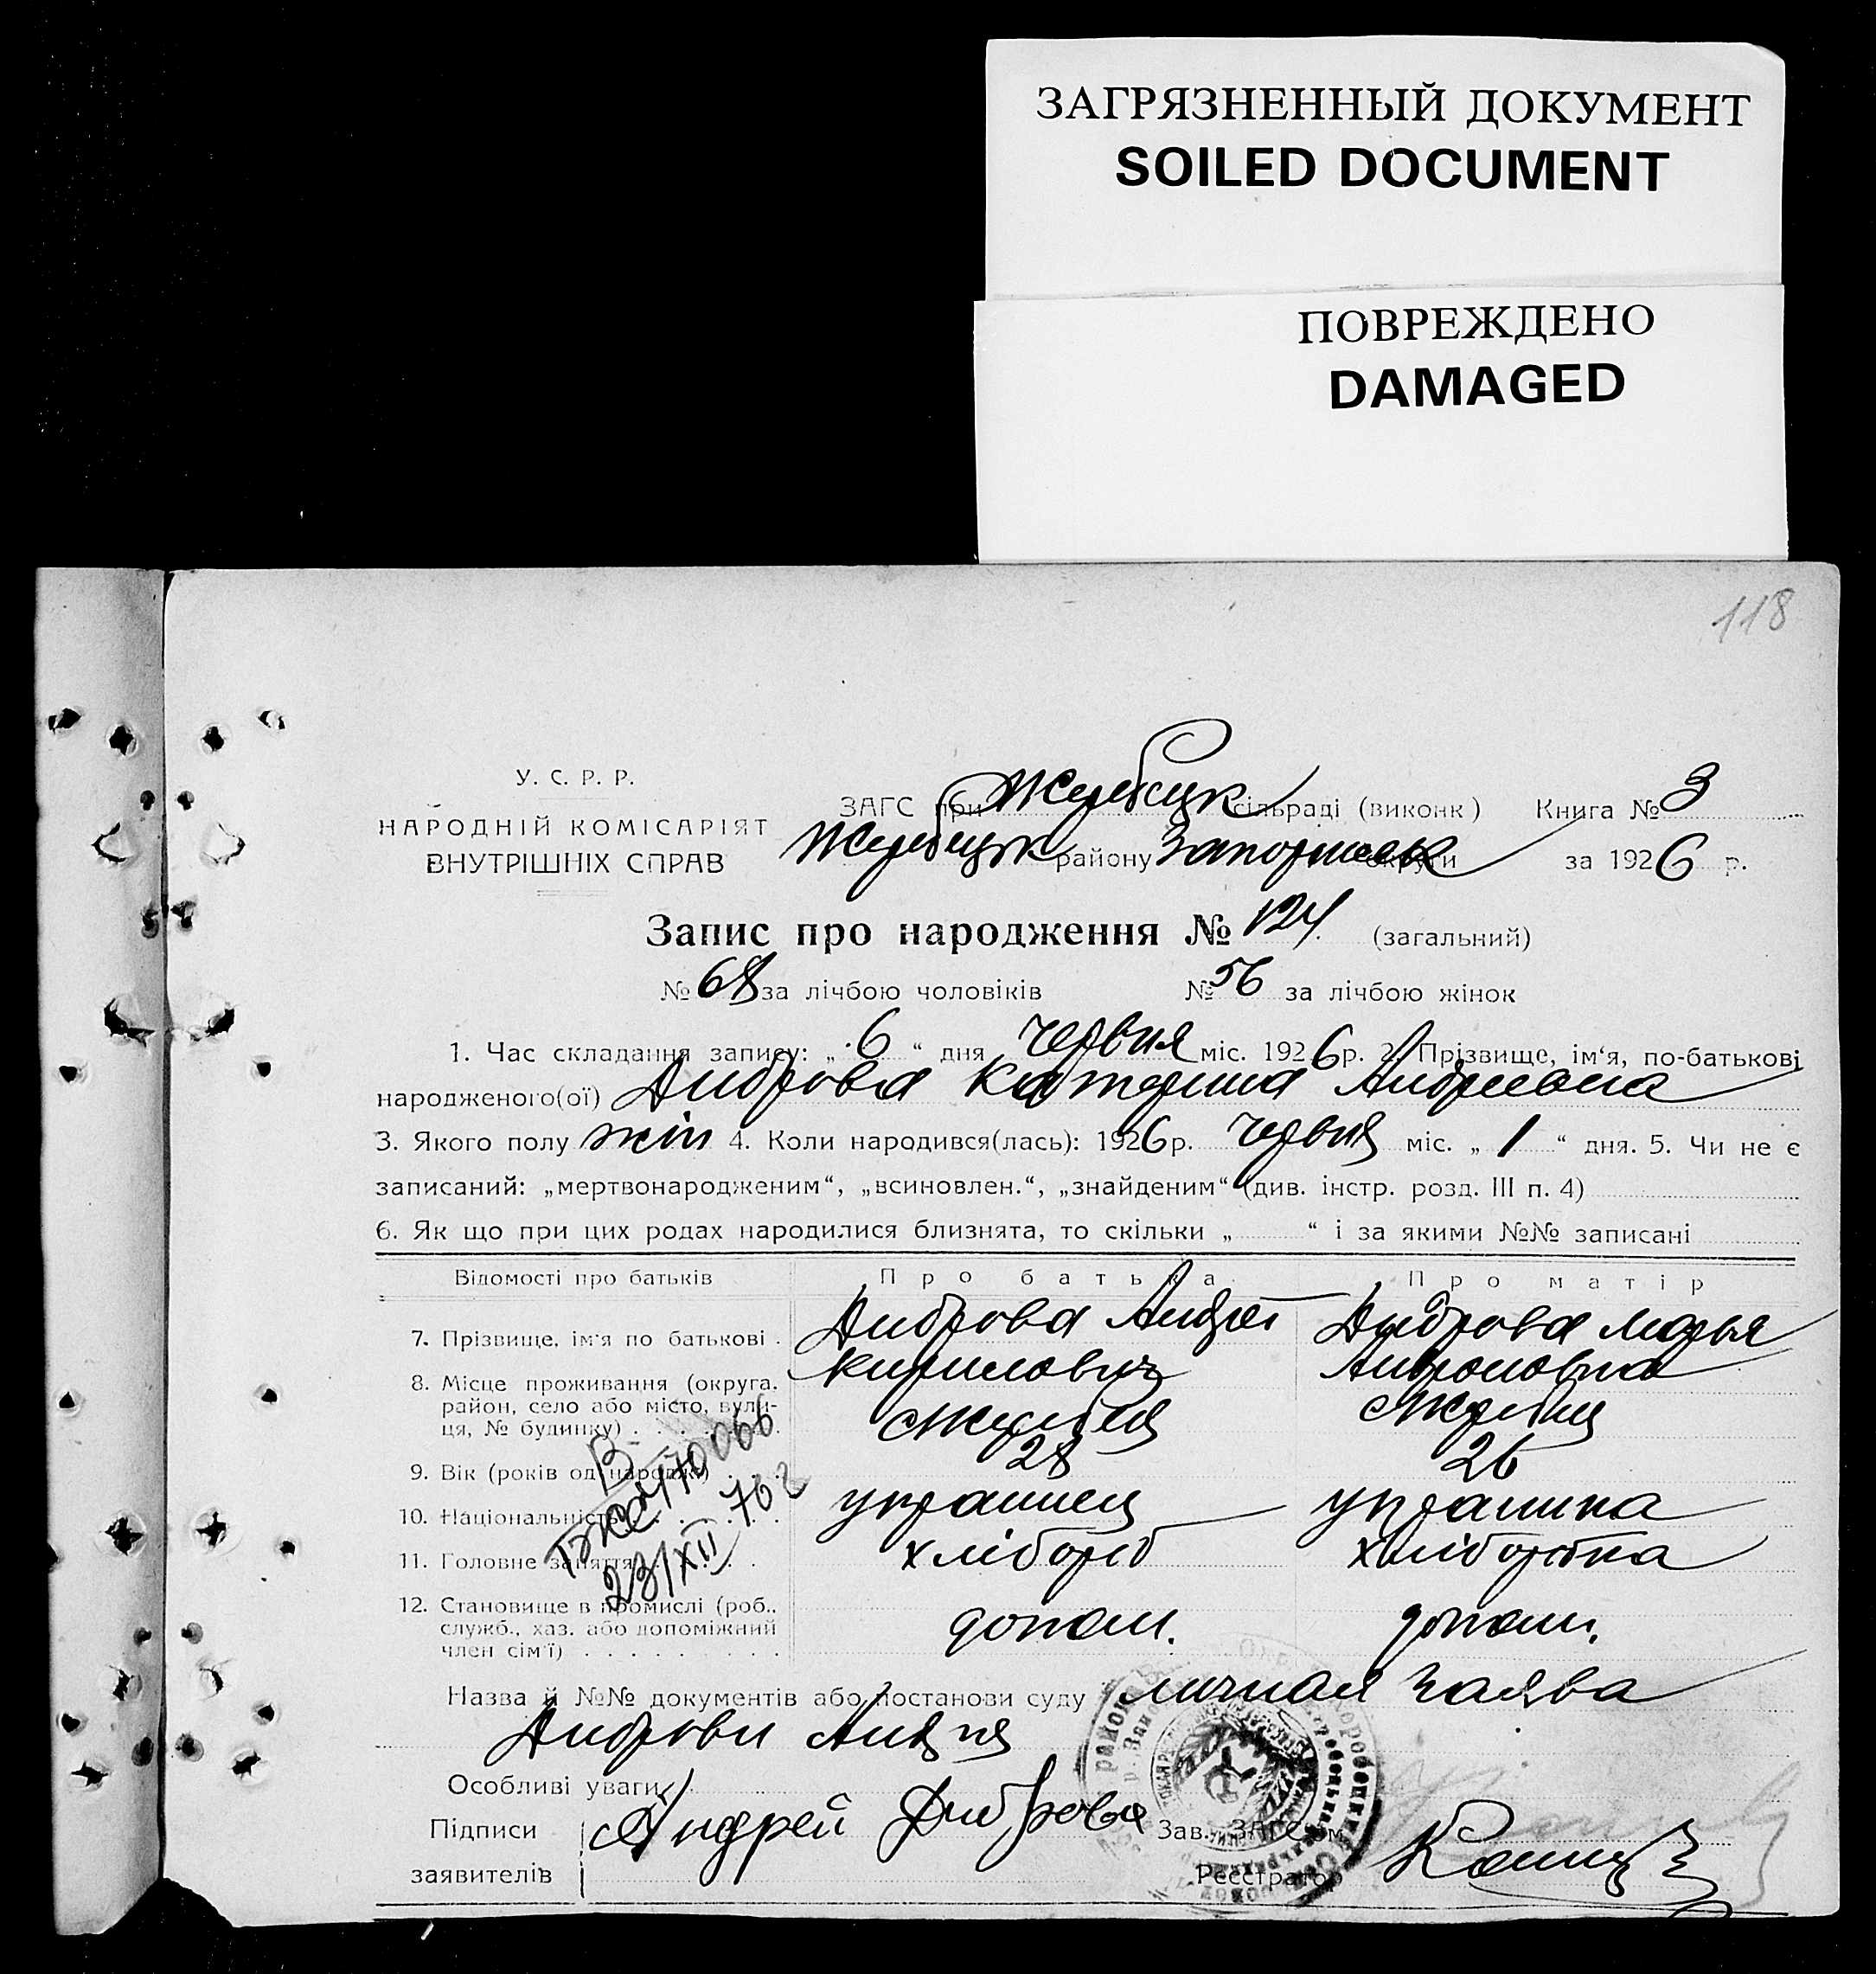 ЗАГРЯЗНЕННЫЙ ДОКУМЕНТ
SOILED DOCUMENT
ПОВРЕЖДЕНО
DAMAGED
118
У. С. Р. Р.
НАРОДНІЙ КОМІСАРІЯТ
ВНУТРІШНІХ СПРАВ
ЗАГС при Жеребецк сільраді (виконк) Книга № 3
Жеребецк району Запоріжск округи за 1926 р.
Запис про народження № 124 (загальний)
№ 68 за лічбою чоловіків № 56 за лічбою жінок
1. Час складання запису: „6“ дня червня міс. 1926 р. 2. Прізвище, ім‘я, по-батькові
народженого(ої) Диброва Катерина Андреевна
3. Якого полу жін 4. Коли народився(лась): 1926 р. червня міс. „1“ дня. 5. Чи не є
записаний: „мертвонародженим“, „всиновлен.“, „знайденим“ (див. інстр. розд. III п. 4)
6. Як що при цих родах народилися близнята, то скільки „ “ і за якими №№ записані
Відомості про батьків Про батька Про матір
7. Прізвище, ім‘я по батькові . Диброва Андрей Кирилович Диброва Марья
8. Місце проживання (округа, район, село або місто, вулиця, № будинку) . с Жеребец с Жеребец
9. Вік (років од народж) . . . 28 26
10. Національність . . . . . українец українка
11. Головне заняття . . . . хлібороб хліборобка
12. Становище в промислі (роб., служб., хаз. або допоміжний член сім‘ї) . . . . . . . . . допом. допом.
170066
23/XII 70 г
Назва й №№ документів або постанови суду личная заява
Диброви Андрея
Особливі уваги
Підписи заявителів Андрей Диброва
Зав. ЗАГС‘ом
Реєстратор